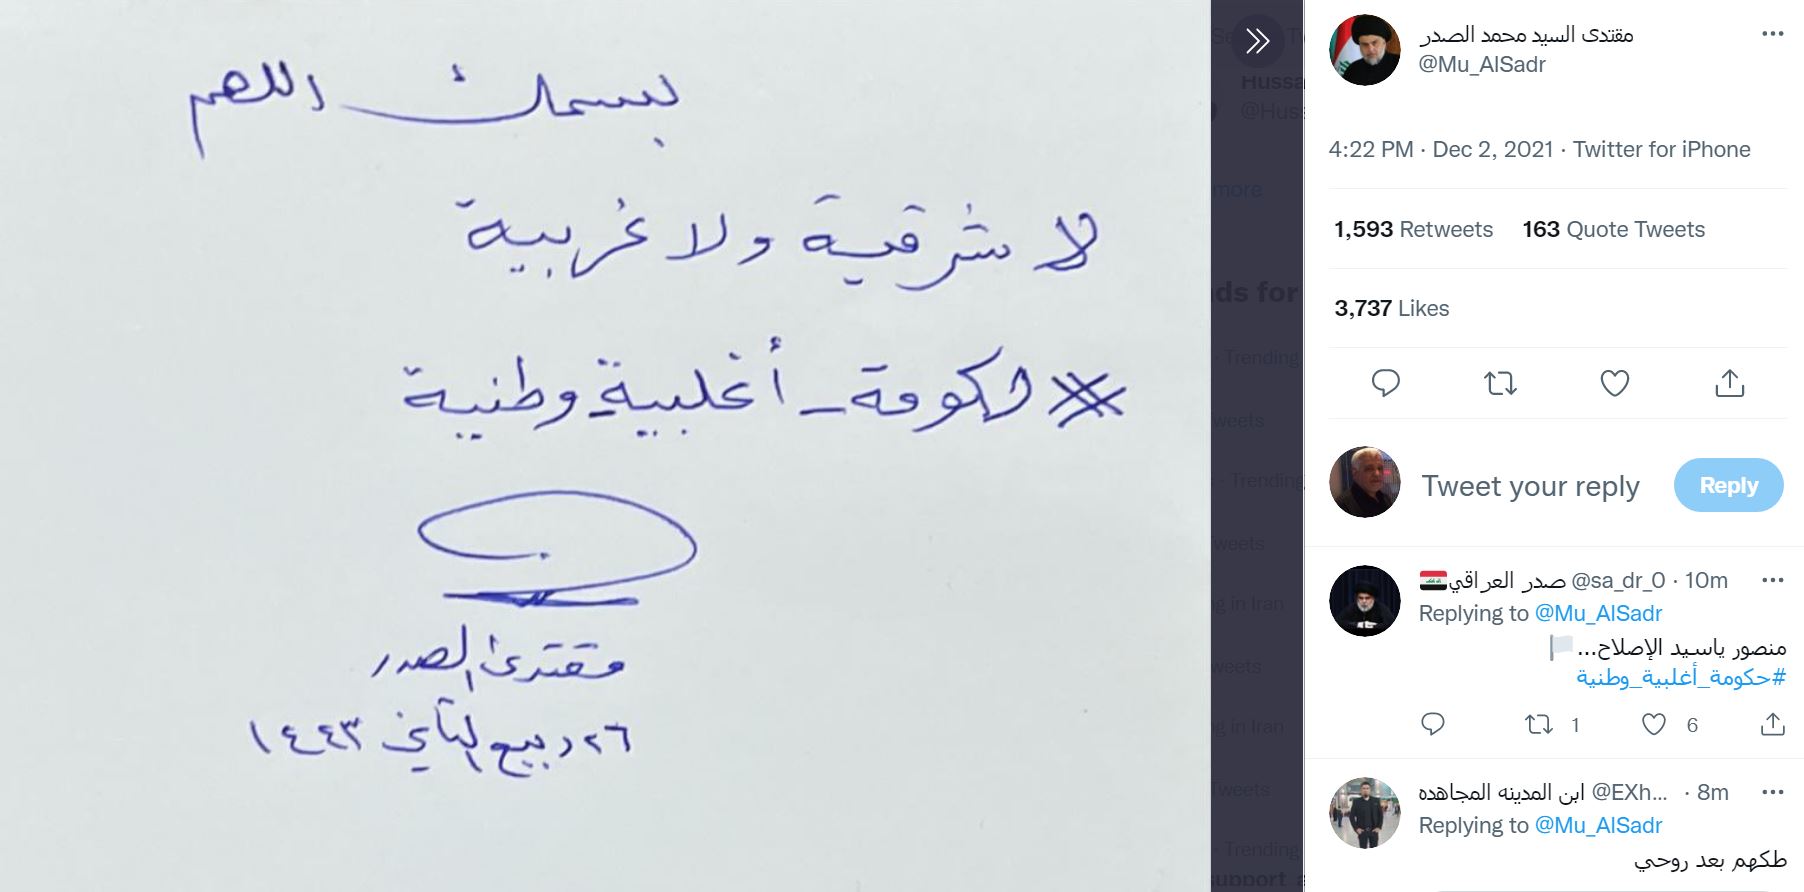 بسمك اللهم
لا شرقية ولا غربية
#حكومة_أغلبية_وطنية
مقتدى الصدر
٢٦ ربيع الثاني ١٤٤٣
مقتدى السيد محمد الصدر
@Mu_AlSadr
4:22 PM · Dec 2, 2021 · Twitter for iPhone
1,593 Retweets 163 Quote Tweets
3,737 Likes
Tweet your reply
Reply
صدر العراقي🇮🇶 @sa_dr_0 · 10m
Replying to @Mu_AlSadr
منصور ياسيد الإصلاح...🏳️
#حكومة_أغلبية_وطنية
1 6
ابن المدينه المجاهده @EXh... · 8m
Replying to @Mu_AlSadr
طكهم بعد روحي
Hussa
@Huss
more
ds for
· Trending
weets
· Trending
weets
g in Iran
weets
g in Iran
Tweets
· Trending
support